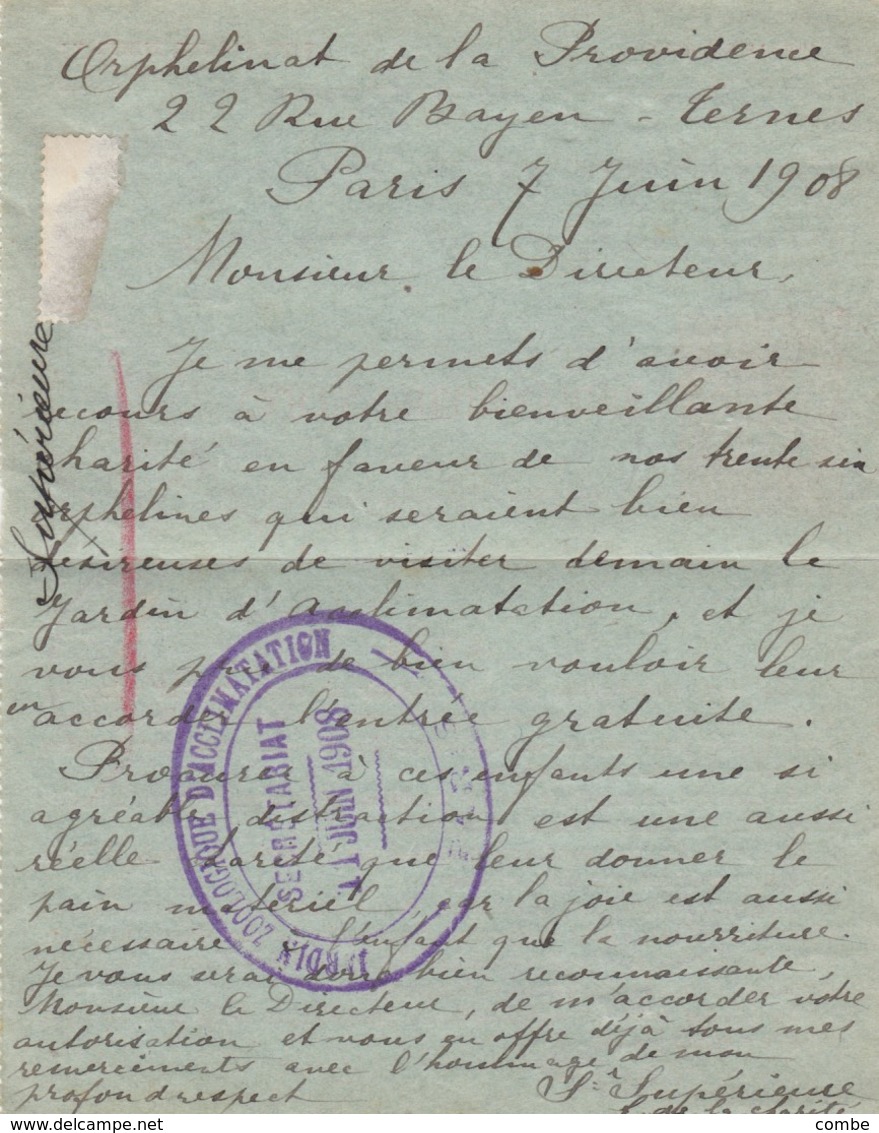 Orphelinat de la Providence
22 Rue Bayen - Ternes
Paris 7 Juin 1908
Monsieur le Directeur,
Je me permets d'avoir
recours à votre bienveillante
charité en faveur de nos trente six
orphelines qui seraient bien
désireuses de visiter demain le
Jardin d'Acclimatation, et je
vous prie de bien vouloir leur
en accorder l'entrée gratuite.
Procurer à ces enfants une si
agréable distraction est une aussi
réelle charité que leur donner le
pain matériel, car la joie est aussi
nécessaire à l'enfant que la nourriture.
Je vous serai donc bien reconnaissante,
Monsieur le Directeur, de m'accorder votre
autorisation et vous en offre déjà tous mes
remerciements avec l'hommage de mon
profond respect
Sr Supérieure
de la charité
Supérieure
JARDIN ZOOLOGIQUE D'ACCLIMATATION
PARIS
SECRETARIAT
11 JUIN 1908
www.delcampe.net
combe